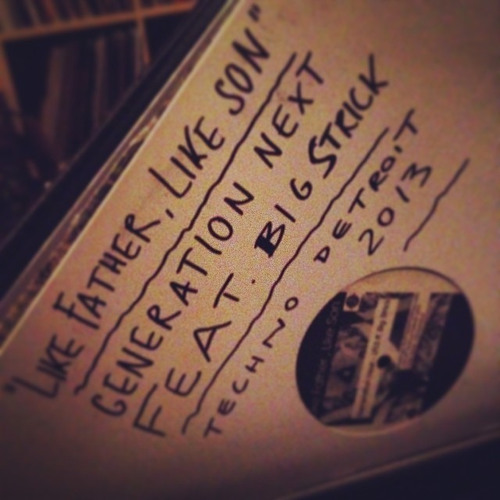 "LIKE FATHER, LIKE SON"
GENERATION NEXT
FEAT. BIG STRICK
TECHNO DETROIT
2013